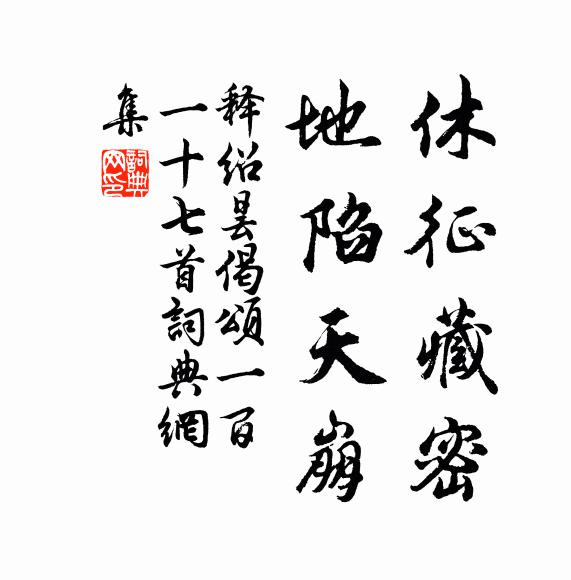 休征藏密
地陷天崩
释绍昙偈颂一百
一十七首詞典網
集
詞典網